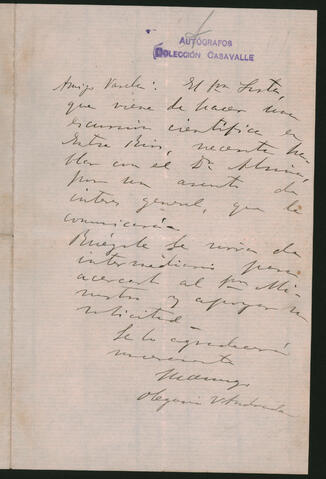 AUTÓGRAFOS
COLECCIÓN CASAVALLE
Amigo Varela: El Sr. Lista,
que viene de hacer una
escursion cientifica en
Entre Rios, necesita ha-
blar con el Dr. Alsina,
por un asunto de
interes general, que le
comunicará.
Ruégole se sirva de
intermediario para
acercarse al Sr. Mi-
nistro y apoyar su
solicitud.
Se lo agradecerá
sinceramente
su amigo
Olegario V. Andrade